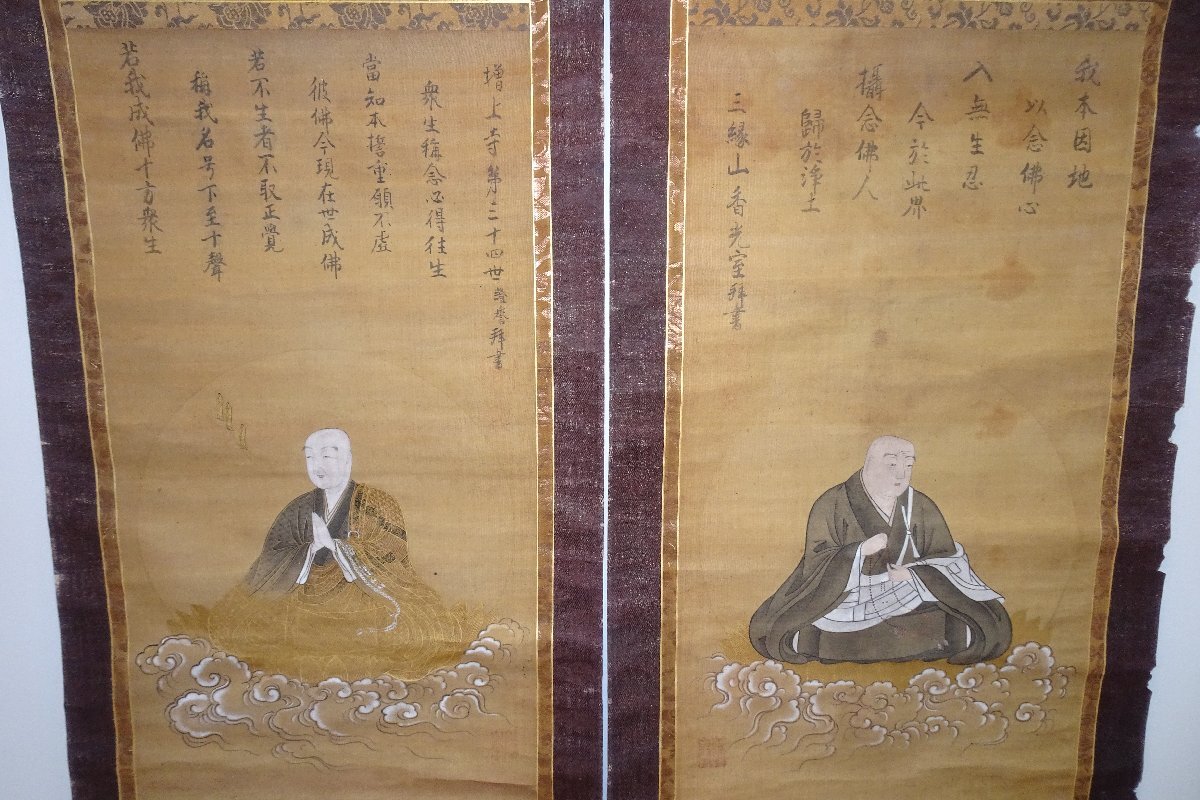 若我成佛十方衆生
稱我名号下至十聲
若不生者不取正覺
彼佛今現在世成佛
當知本誓重願不虚
衆生稱念必得往生
増上寺第三十四世證誉拜書
我本因地
以念佛心
入無生忍
今於此界
攝念佛人
歸於淨土
三縁山香光室拜書